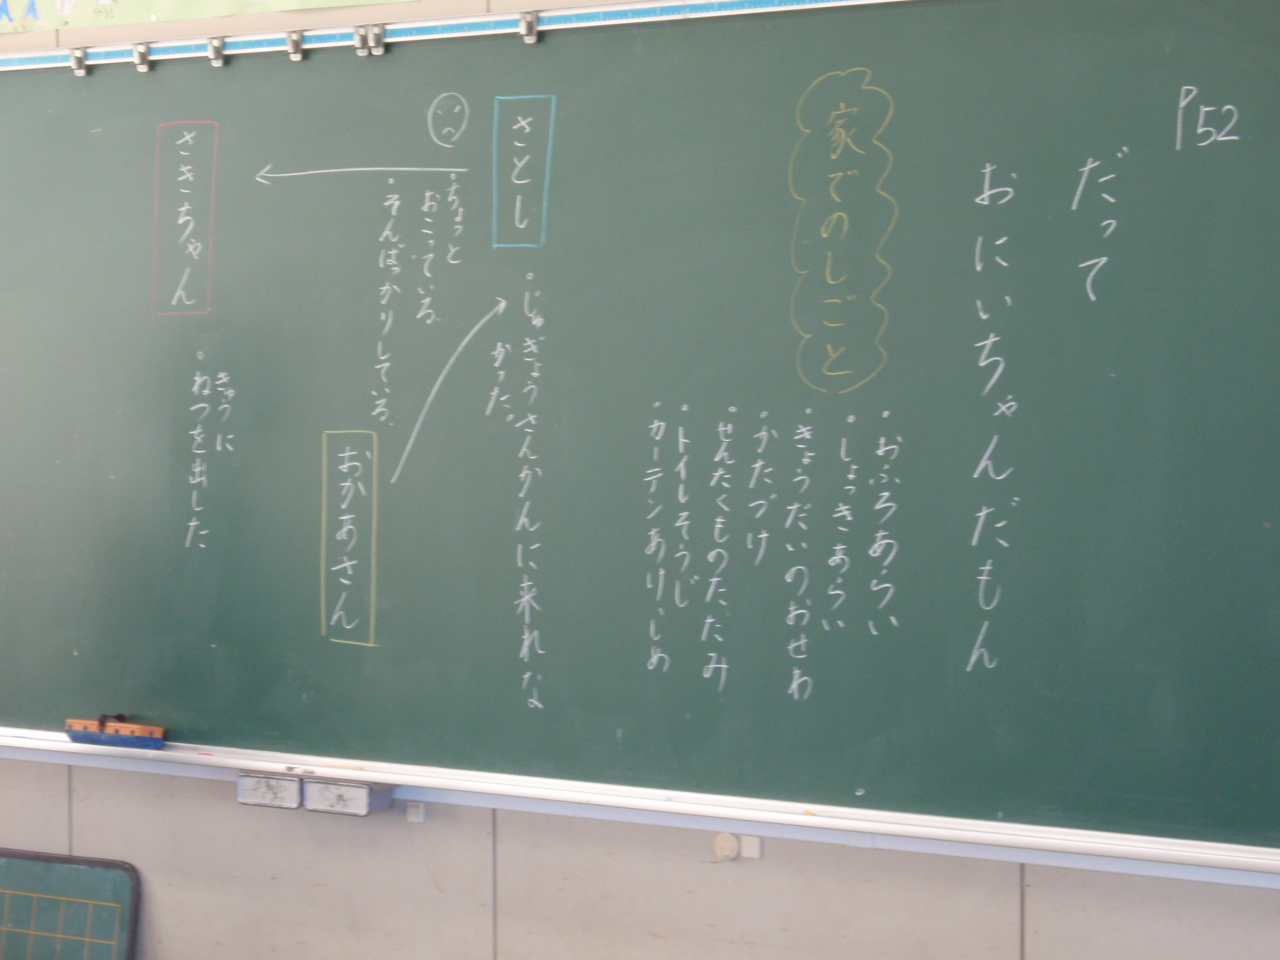 P52
だって
おにいちゃんだもん
家でのしごと
・おふろあらい
・しょっきあらい
・きょうだいのおせわ
・かたづけ
・せんたくものたたみ
・トイレそうじ
・カーテンあけしめ
さとし
・じゅぎょうさんかんに来れな
かった。
・ちょっと
おこっている。
・そんばっかりしている。
おかあさん
さきちゃん
・きゅうに
ねつを出した